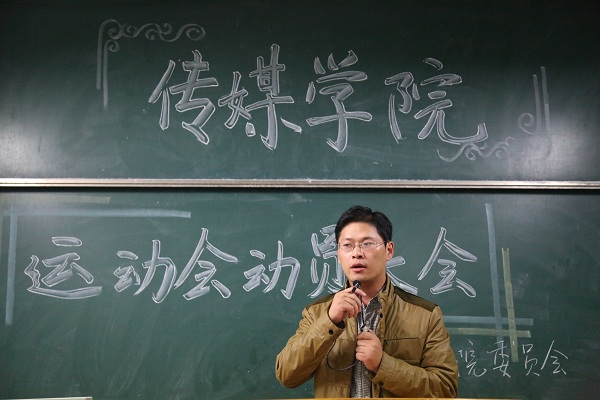 传媒学院
运动会动员大会
院委员会